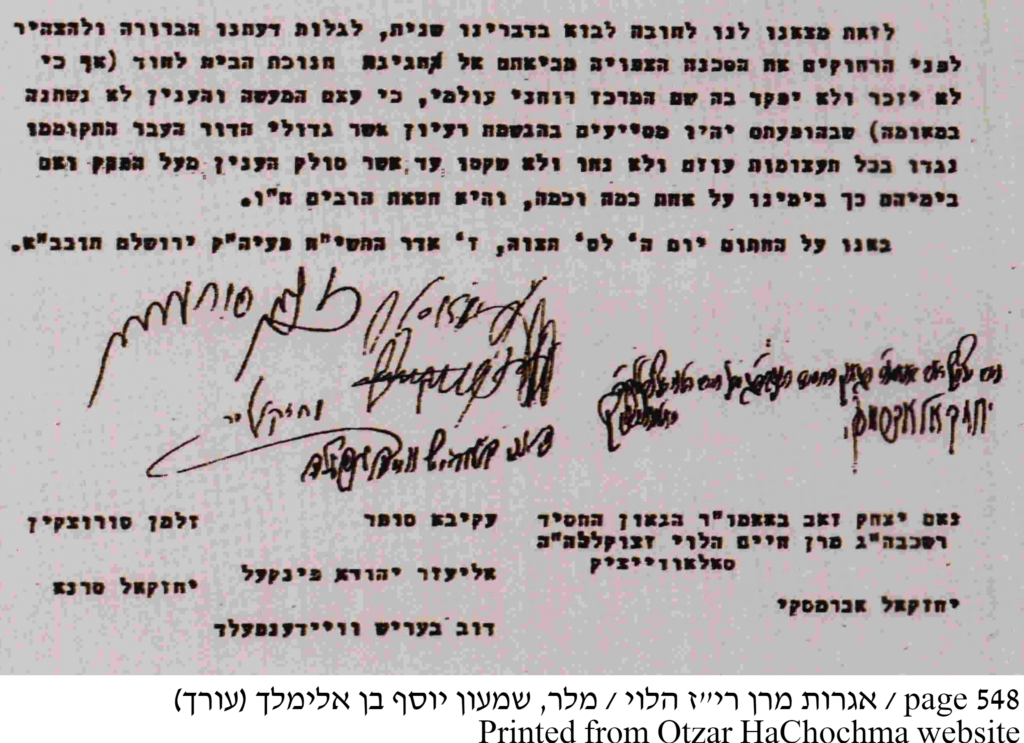 לזאת מצאנו לנו לחובה לבוא בדברינו שנית, לגלות דעתנו הברורה ולהצהיר
לפני הרחוקים את הסכנה הצפויה מביאתם אל חגיגת חנוכת הבית לחוד (אף כי
לא יזכר ולא יפקד בה שם המרכז רוחני עולמי, כי עצם המעשה והענין לא נשתנה
במאומה) שבהופעתם יהיו מסייעים בהגשמת רעיון אשר גדולי הדור העבר התקוממו
נגדו בכל תעצומות עוזם ולא נחו ולא שקטו עד אשר סולק הענין מעל הפרק ואם
בימיהם כך בימינו על אחת כמה וכמה, והיא חטאת הרבים ח"ו.
באנו על החתום יום ה' לס' תצוה, ז' אדר התשי"ח פעיה"ק ירושלם תובב"א.
זלמן סורוצקין
יחזקאל סרנא
נאם יצחק זאב באאמו"ר הגאון החסיד
עקיבא סופר
זלמן סורוצקין
רשכבה"ג מרן חיים הלוי זצוקללה"ה
סאלאווייציק
אליעזר יהודא פינקעל
יחזקאל סרנא
יחזקאל אברמסקי
דוב בעריש וויידענפעלד
page 548 / אגרות מרן רי״ז הלוי / מלר, שמעון יוסף בן אלימלך (עורך)
Printed from Otzar HaChochma website